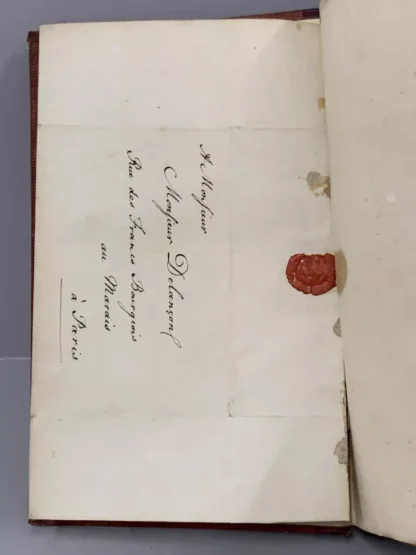 A Monsieur
Monsieur Delançon
Rue des Francs Bourgeois
au Marais
à Paris